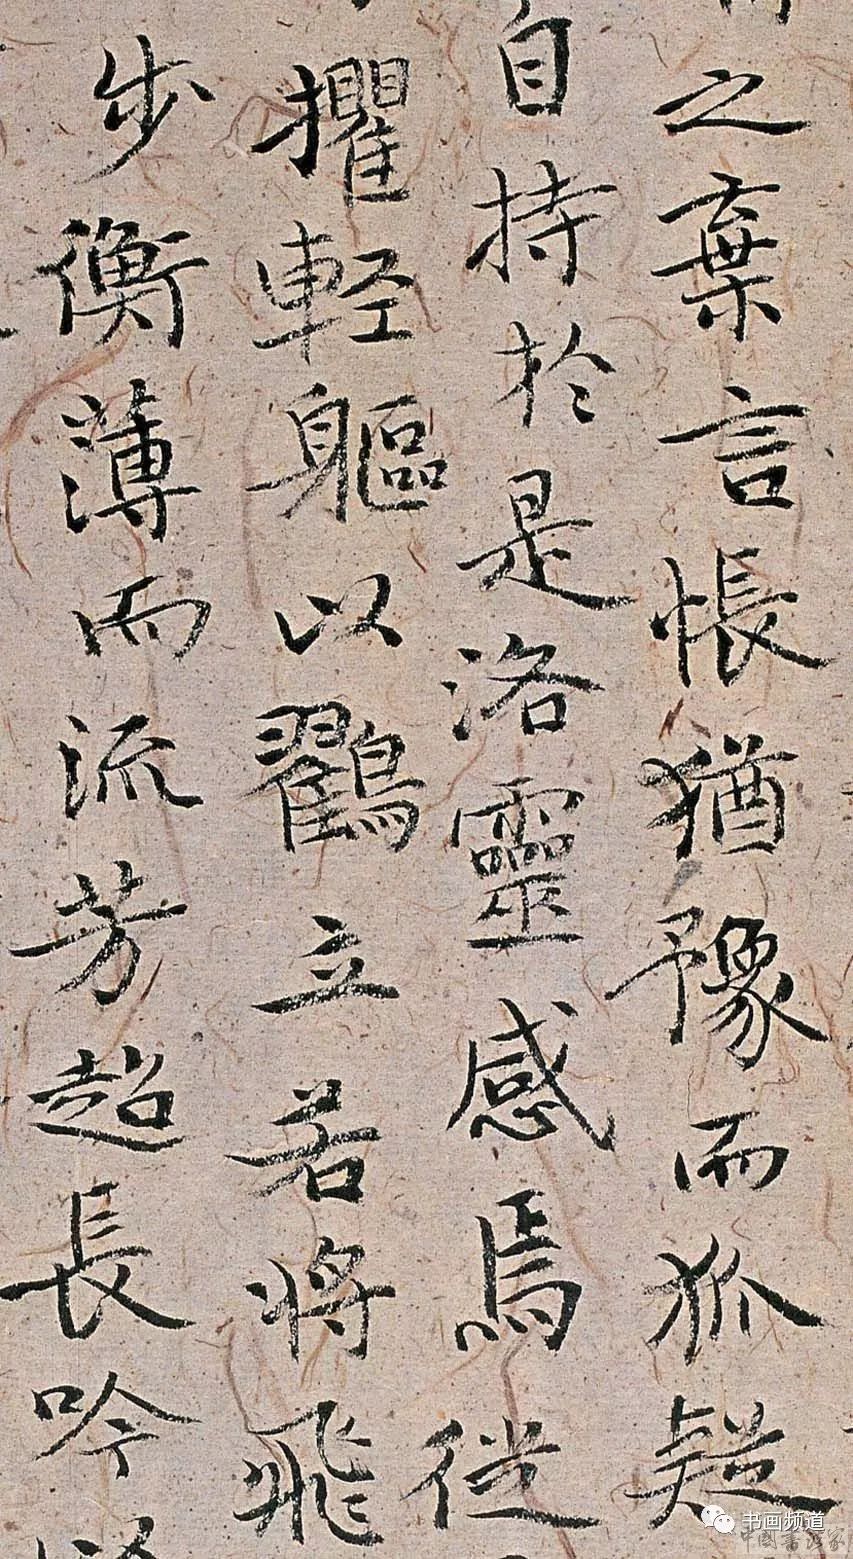 之棄言悵猶豫而狐疑
自持於是洛靈感焉徙
軽軀以鶴立若将飛
步衡薄而流芳超長吟
书画频道